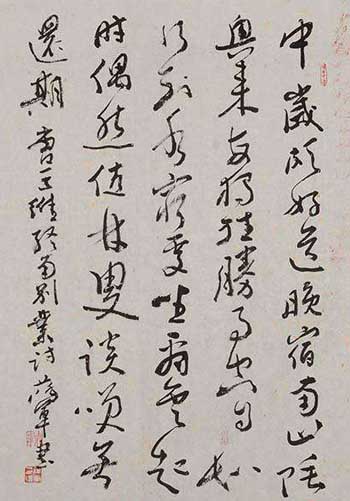 中歲頗好道晚宿南山陲
興来每獨往勝事空自知
行到水窮處坐看雲起
時偶然值林叟談笑無
還期 唐王維終南别業詩 軍書